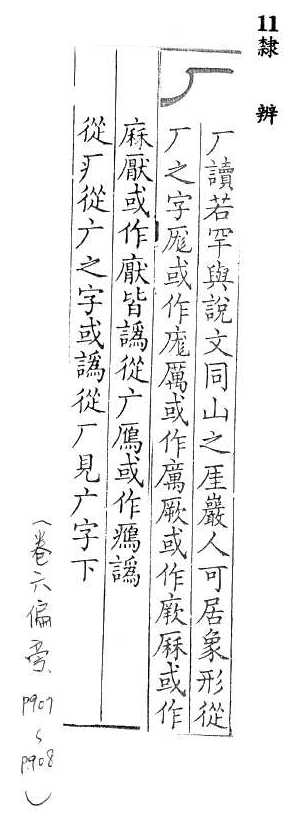 11 隸辨
厂讀若罕與說文同山之厓巖人可居象形從
厂之字厖或作庬厲或作廣厥或作廞厤或作
庥厭或作廞皆譌從广鴈或作鴈譌
從疒從广之字或譌從厂見广字下
(卷六偏旁
P907
P908)